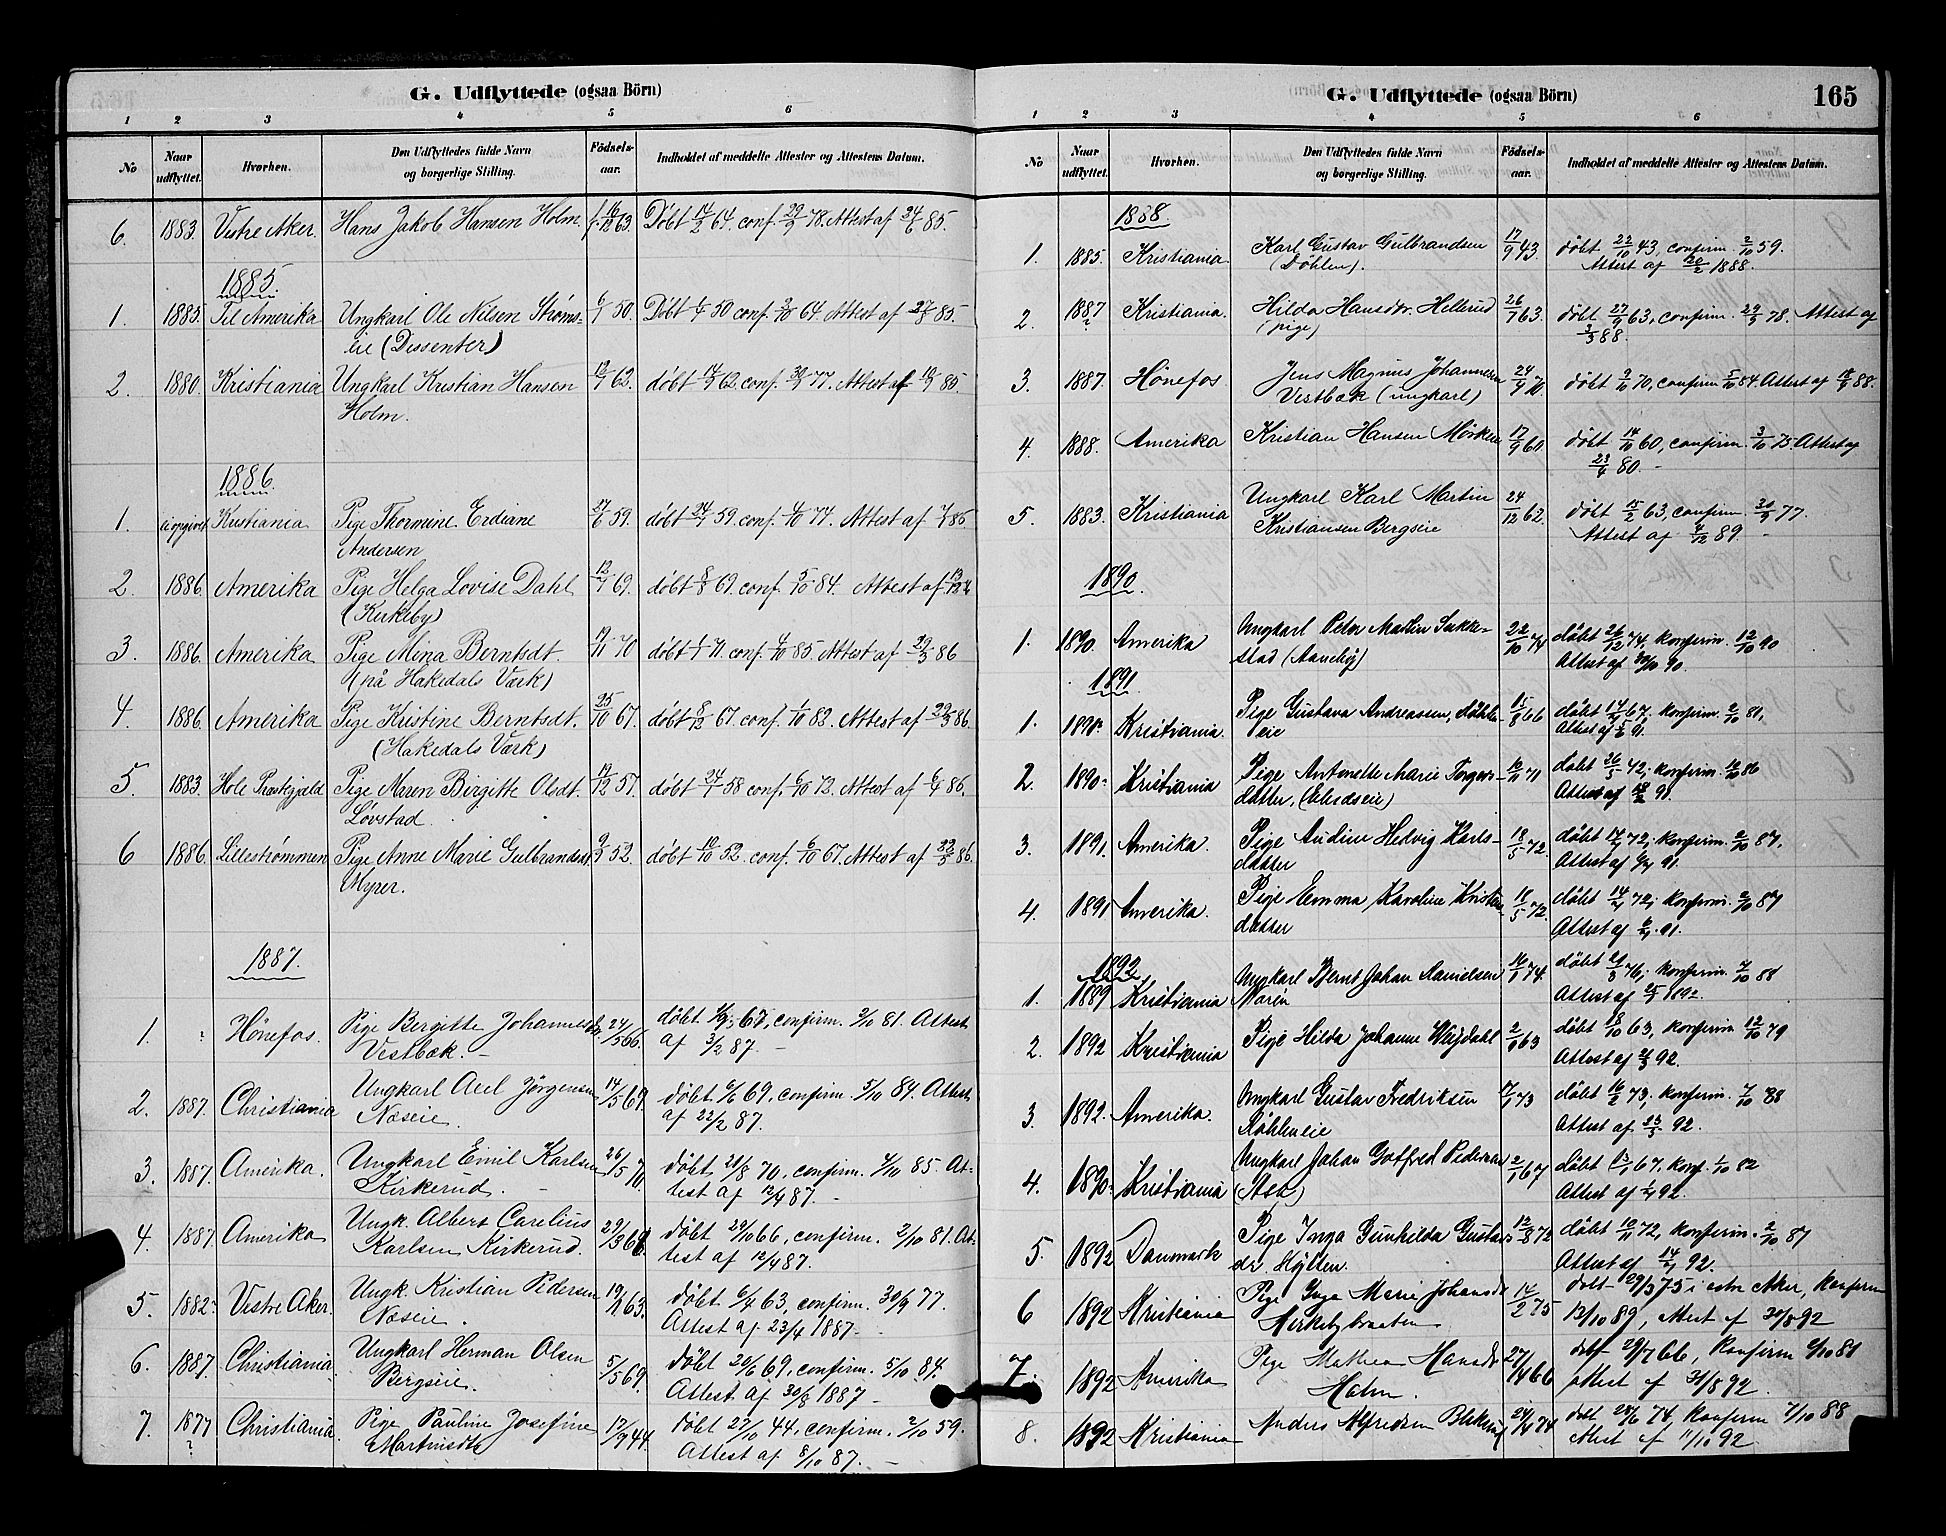 G. Udflyttede (ogsaa Börn)
1 2 3 4 5 6
No Naar udflyttet. Hvorhen. Den Udflyttedes fulde Navn og borgerlige Stilling. Födsels-aar. Indholdet af meddelte Attester og Attestens Datum.
6. 1883. Vestre Aker. Hans Jakob Hansen Holm. f. 16/12 63. Döbt 14/2 64. conf. 29/9 78. Attest af 24/1 85.
1885.
1. 1885. Til Amerika Ungkarl Ole Nilsen Ströms-
eie (Dissenter)
50. Döbt 50 conf. 2/10 64. Attest af 85.
2. 1880. Kristiania Ungkarl Kristian Hansen
Holm.
62. döbt 62. conf. 30/9 77. Attest af 85.
1886.
1. ei opgivet Kristiania Pige Thormine Erdiane
Andersen
59. döbt 59. conf. 74. Attest af 86
2. 1886. Amerika Pige Helga Lovise Dahl
(Kirkeby)
12/7 69. döbt 8/8 69. conf. 5/10 84. Attest af
3. 1886. Amerika Pige Mina Berntsdt.
(på Hakedals Værk)
19/11 70 döbt 71. conf. 4/10 85. Attest af 86
4. 1886. Amerika Pige Kristine Berntsdt.
(Hakedals Værk)
25/10 67. döbt 8/12 67. conf. 1/10 82. Attest af 86.
5. 1883. Hole Præstegjæld Pige Maren Birgitte Olsdt.
Lövstad.
19/12 57. döbt 24/1 58 conf. 6/10 72. Attest af 86.
6 1886. Lilleströmmen Pige Anne Marie Gulbrandsdt
Myrer.
9/9 52. döbt 10/10 52. conf. 6/10 67. Attest af 86.
1887.
1. Hönefos. Pige Bergitte Johannesdtr.
Vestbæk. -
24/5 66. döbt 67, confirm. 2/10 81. Attest
af 3/2 87. -
2. 1887. Christiania Ungkarl Axel Jörgensen
Næseie.
14/5 69. döbt 6/6 69, confirm. 5/10 84. Attest
af 22/2 87.
3. 1887. Amerika. Ungkarl Emil Karlsen
Kirkerud. -
26/5 70. döbt 21/8 70, confirm. 4/10 85 At-
test af 12/4 87. -
4. 1887. Amerika Ungk. Albert Carelius
Karlsen Kirkerud.
29/3 66. döbt 29/10 66, confirm. 2/10 81. At-
test af 12/4 87.
5. 1882. Vestre Aker. Ungk. Kristian Pedersen
Næseie.
63. döbt 6/4 63, confirm. 30/9 77.
Attest af 23/4 1887.
6. 1887. Christiania. Ungkarl Herman Olsen
Bergseie.
5/5 69. döbt 20/6 69, confirm. 5/10 84.
Attest af 30/8 1887 -
7. 1877 ? Christiania. Pige Pauline Josefine
Martinsdtr.
17/9 44. döbt 27/10 44, confirm. 2/10 59.
Attest af 8/10 87. -
G. Udflyttede (ogsaa Börn) 165
1 2 3 4 5 6
No Naar udflyttet. Hvorhen. Den Udflyttedes fulde Navn og borgerlige Stilling. Födsels-aar. Indholdet af meddelte Attester og Attestens Datum.
1888.
1. 1885. Kristiania Karl Gustav Gulbrandsen
(Döhlen).
17/9 43. döbt 22/10 43, confirm. 2/10 59.
Attest af 20/2 1888.
2. 1887 ? Kristiania. Hilda Hansdtr. Hellerud
(pige)
26/7 63. döbt 27/9 63, confirm. 29/9 78. Attest af
3/3 88.
3. 1887. Hönefos Jens Magnus Johannesen
Vestbæk (ungkarl)
24/9 70. döbt 9/10 70, confirm 5/10 84. Attest af 88.
4. 1888. Amerika Kristian Hansen Mörken
17/9 60. döbt 14/10 60, confirm. 3/10 75. Attest af
80. -
5. 1883. Kristiania Ungkarl Karl Martin
Kristiansen Bergseie
24/12 62. döbt 15/2 63, confirm. 30/9 77.
Attest af 4/12 89. -
1890.
1. 1890. Amerika Ungkarl Peter Martin Sukke-
stad (Aaneby)
22/10 74 döbt 26/12 74, konfirm. 12/10 90
Attest af 90.
1891.
1. 1890. Kristiania. Pige Gustava Andreassen, Döhlen
eie
66 döbt 67, konfirm. 2/10 81,
Attest af 91.
2. 1890. Kristiania Pige Antonette Marie Torgers-
datter,
71 döbt konfirm. 86
Attest af 18/2 91.
3. 1891. Amerika. Pige Audine Hedvig Karls-
datter
18/5 72. döbt 14/7 72, konfirm. 2/10 87,
Attest af 91.
4. 1891 Amerika. Pige Emma Karoline Kristen
datter
18/5 72. döbt 14/7 72, konfirm. 2/10 87
Attest af 91.
1892
1. 1889 Kristiania Ungkarl Bernt Johan Danielsen
Moren
74. döbt konfirm. 7/10 88
Attest af 1892.
2. 1892 Kristiania Pige Hilda Johanne Weydahl
2/9 63 döbt 18/10 63, konfirm 12/10 79
Attest af 92.
3 1892. Amerika. Ungkarl Gustav Fredriksen
Döhleneie
73 döbt 16/2 73, konfirm. 7/10 88
Attest af 92.
4. 1890. Kristiania Ungkarl Johan Gotfred Pedersen
(Ask)
67 döbt 67, konf. 1/10 82
Attest af 92.
5. 1892 Danmark Pige Inga Gunhilda Gustavs
dr. Hytten.
12/8 72 döbt 10/11 72, konfirm. 2/10 87
Attest af 14/7 92.
6 1892 Kristiania Pige Inga Marie Johansdr
Kirkebybraaten
75 döbt 29/3 75 i estre Aker, Konfirm
13/10 89, attest af 30/8 92
7. 1892 Amerika Pige Mathea Hansdr
Holm.
27/4 66 döbt 29/7 66, Konfirm 81
attest af 31/8 92.
8. 1892 Kristiania Anders Alfredsen Blekerud
24/4 74 döbt 24/6 74, Konfirm 7/10 88
attest af 11/10 92.